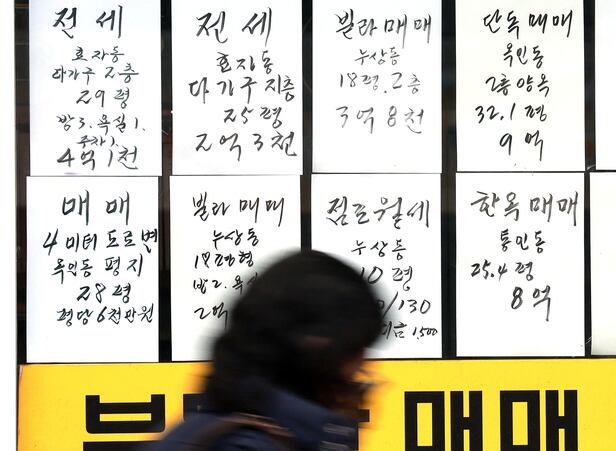 전세
효자동
다가구 2층
29평
방3. 욕실1.
주차1.
4억1천
전세
효자동
다가구 지층
25평
2억3천
빌라매매
누상동
18평. 2층
3억8천
단독매매
옥인동
2층양옥
32.1평
9억
매매
4미터 도로변
옥인동 평지
28평
평당 6천만원
빌라매매
누상동
방2. 욕실
2억
점포월세
누상동
10평
/130
1,500
한옥매매
통인동
25.4평
8억
매매